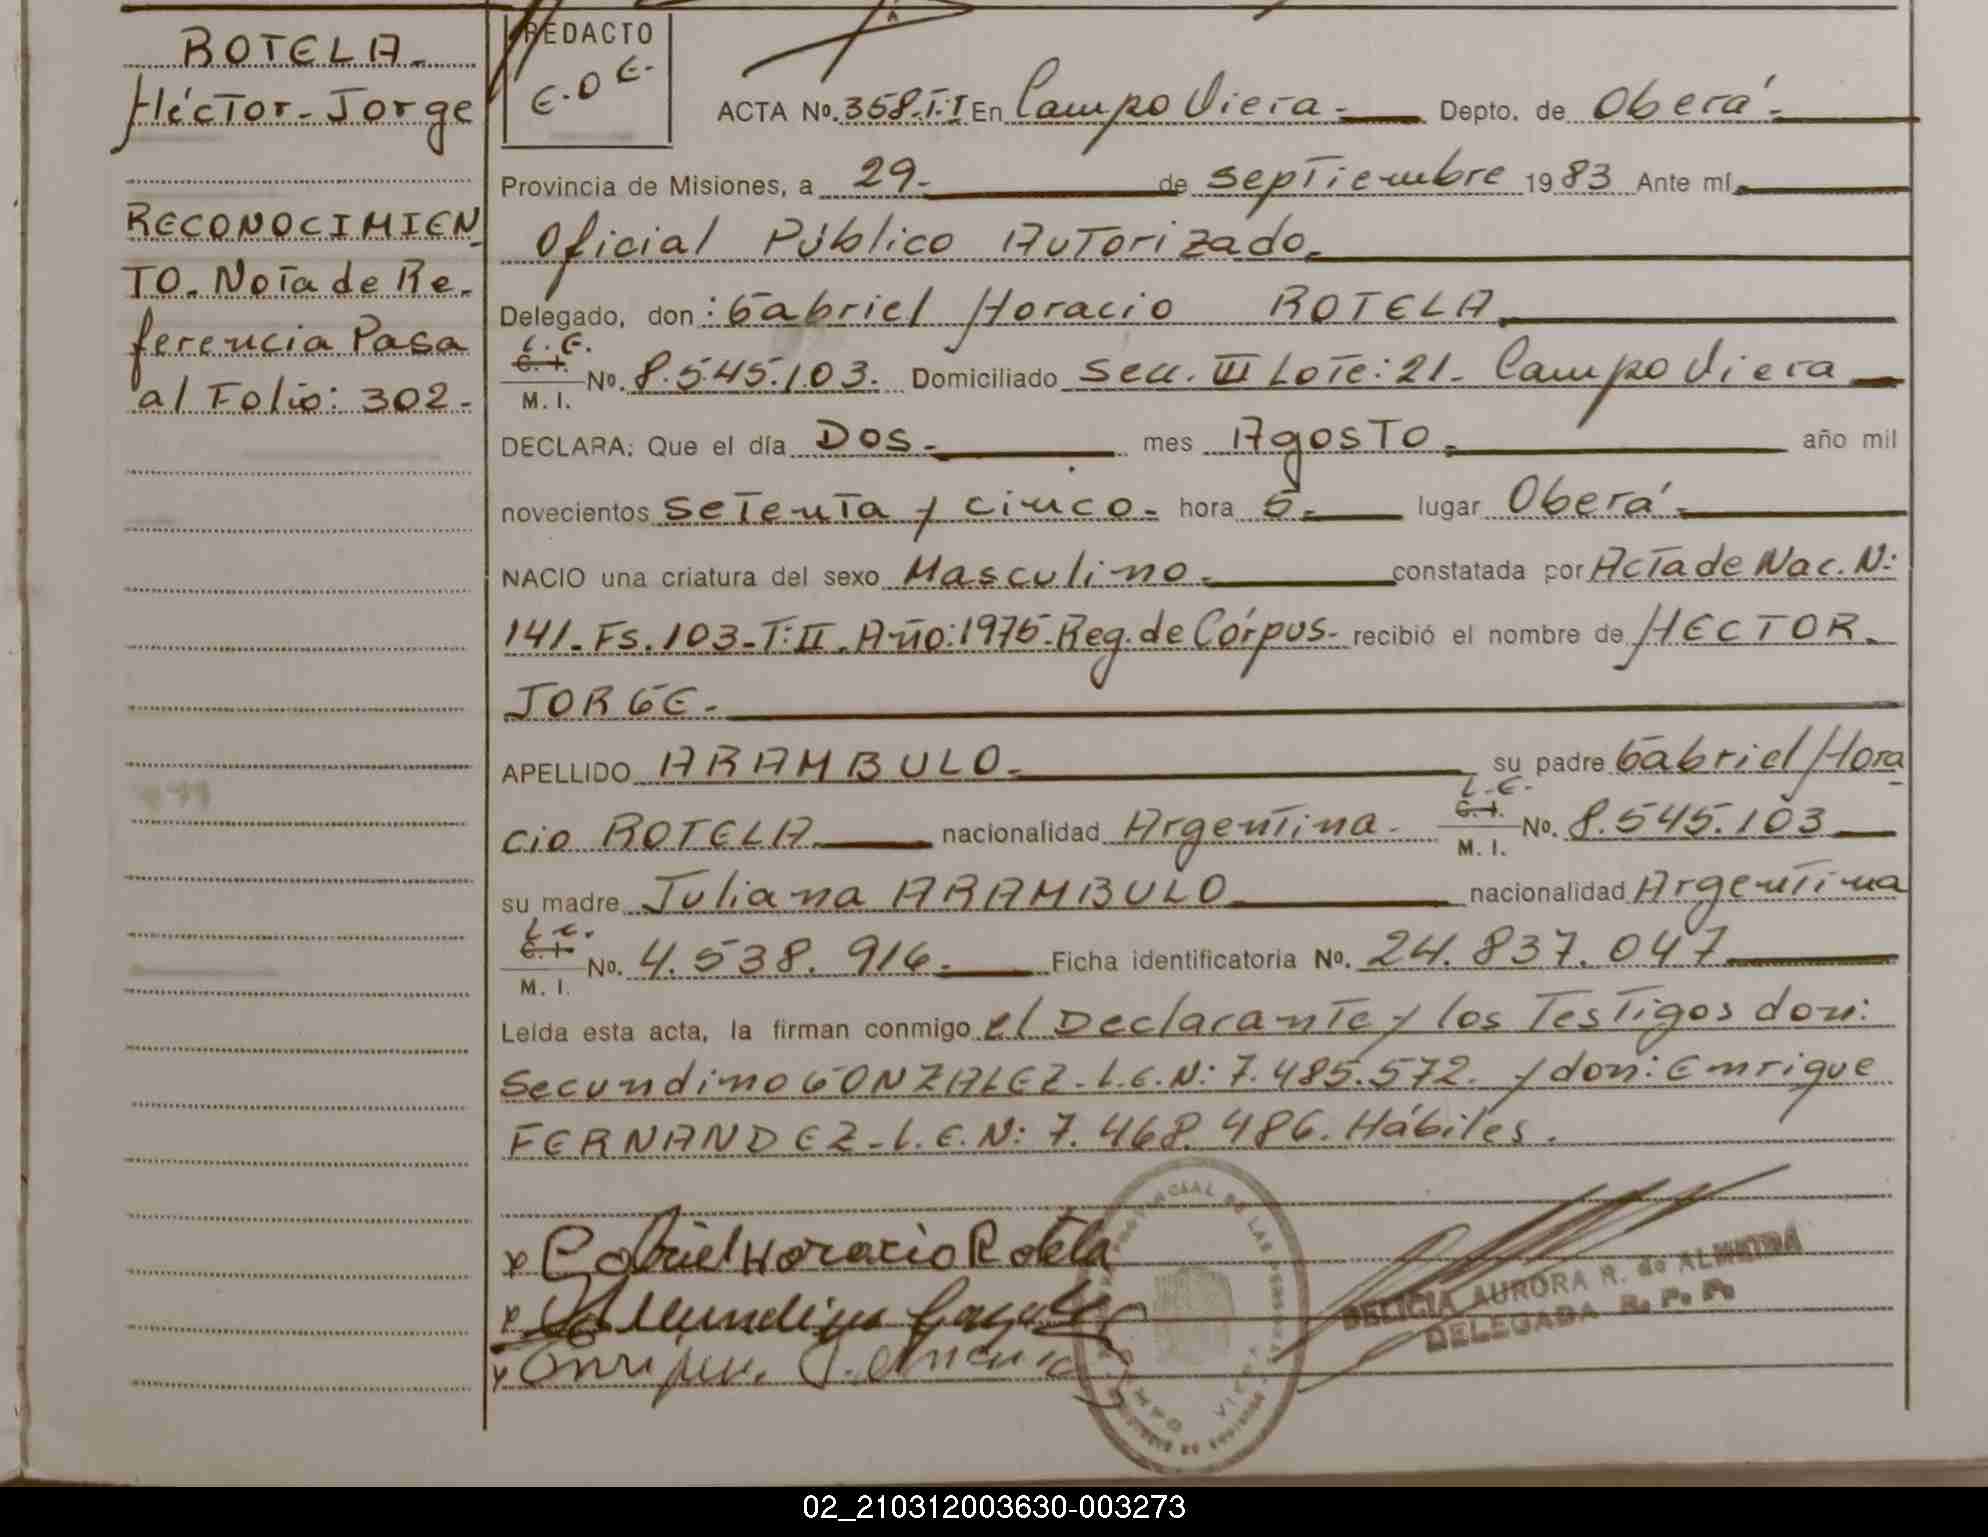 ROTELA.
Héctor-Jorge
RECONOCIMIEN
TO. Nota de Re.
ferencia Pasa
al Folio: 302.
REDACTO
E.D E.
ACTA No. 358.T:I En Campo Viera. Depto. de Oberá.
Provincia de Misiones, a 29. de septiembre 1983 Ante mí
Oficial Público Autorizado.
Delegado, don: Gabriel Horacio ROTELA
L.E.
C.I.
M. I. No. 8.545.103. Domiciliado Secc. III Lote: 21. Campo Viera
DECLARA: Que el día Dos. mes Agosto. año mil
novecientos setenta y cinco. hora 5. lugar Oberá.
NACIO una criatura del sexo Masculino. constatada por Acta de Nac. N:
141. Fs. 103. T: II. Año: 1975. Reg. de Córpus. recibió el nombre de HECTOR
JORGE.
APELLIDO ARAMBULO. su padre Gabriel Hora
cio ROTELA nacionalidad Argentina. L.E. C.I. M. I. No. 8.545.103
su madre Juliana ARAMBULO nacionalidad Argentina
L.C.
C.I.
M. I. No. 4.538.916. Ficha identificatoria No. 24.837.047
Leída esta acta, la firman conmigo el Declarante y los Testigos don:
Secundino GONZALEZ. L.E. N: 7.485.572. y don: Enrique
FERNANDEZ. L.E. N: 7.468.486. Hábiles.
x Gabriel Horacio Rotela
DELICIA AURORA R. de ALMEIDA
DELEGADA R. P. P.
02_210312003630-003273